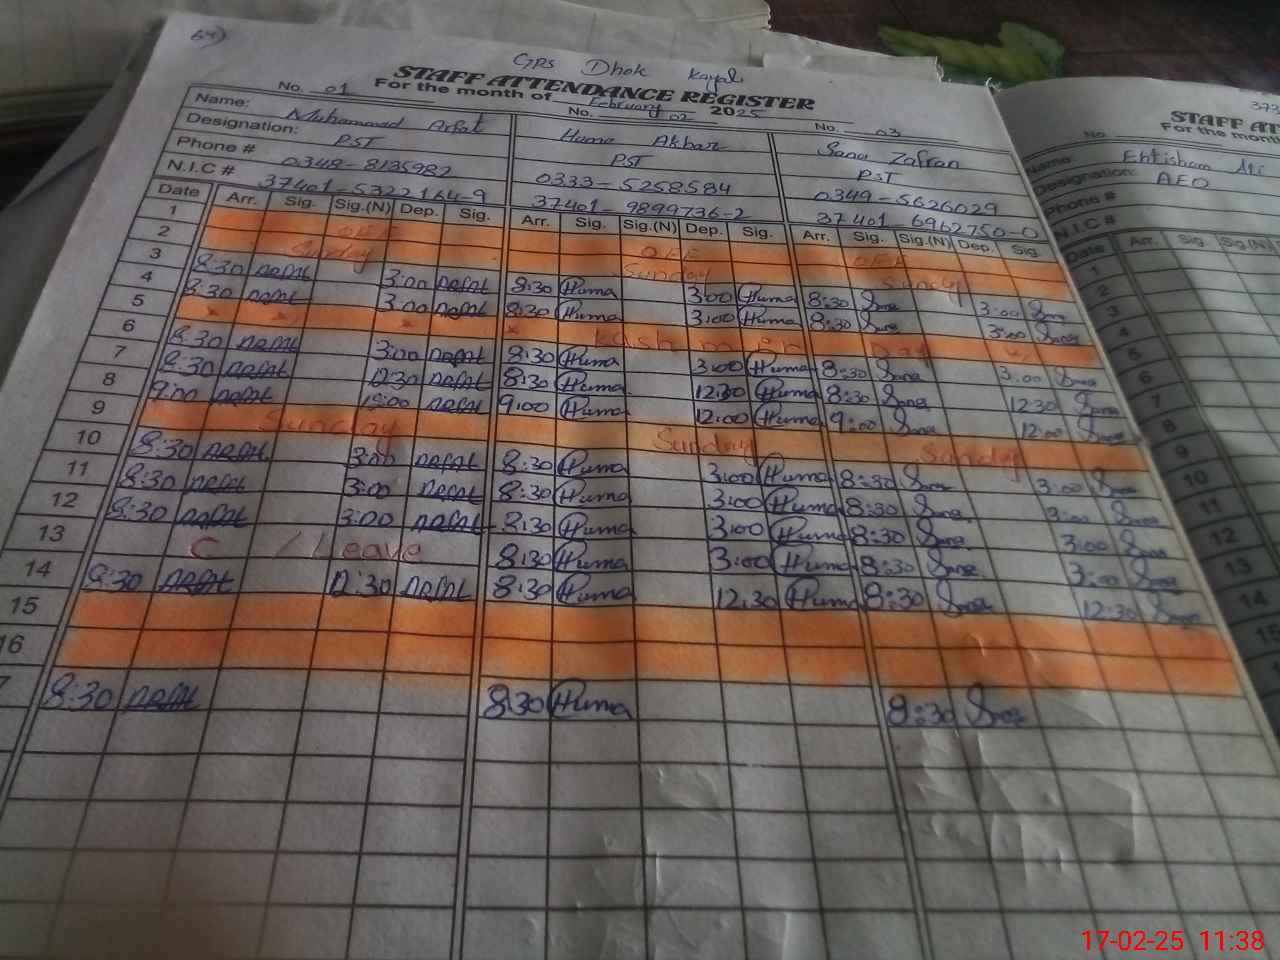 64)
GPS Dhok Kayal
STAFF ATTENDANCE REGISTER
For the month of February 2025
No. 01 No. 02 No. 03
Name: Muhammad Arfat Huma Akhar Sana Zafran
Designation: PST PST PST
Phone # 0348-8135982 0333-5258584 0349-5626029
N.I.C # 37401-5322164-9 37401-9899736-2 37401 6962750-0
Date Arr. Sig. Sig.(N) Dep. Sig. Arr. Sig. Sig.(N) Dep. Sig. Arr. Sig. Sig.(N) Dep. Sig.
1 OFF OFF OFF
2 Sunday Sunday Sunday
3 8:30 Arfat 3:00 Arfat 8:30 Huma 3:00 Huma 8:30 Sana 3:00 Sana
4 8:30 Arfat 3:00 Arfat 8:30 Huma 3:00 Huma 8:30 Sana 3:00 Sana
5 Kashmir Day
6 8:30 Arfat 3:00 Arfat 8:30 Huma 3:00 Huma 8:30 Sana 3:00 Sana
7 8:30 Arfat 12:30 Arfat 8:30 Huma 12:30 Huma 8:30 Sana 12:30 Sana
8 9:00 Arfat 12:00 Arfat 9:00 Huma 12:00 Huma 9:00 Sana 12:00 Sana
9 Sunday Sunday Sunday
10 8:30 Arfat 3:00 Arfat 8:30 Huma 3:00 Huma 8:30 Sana 3:00 Sana
11 8:30 Arfat 3:00 Arfat 8:30 Huma 3:00 Huma 8:30 Sana 3:00 Sana
12 8:30 Arfat 3:00 Arfat 8:30 Huma 3:00 Huma 8:30 Sana 3:00 Sana
13 C / Leave 8:30 Huma 3:00 Huma 8:30 Sana 3:00 Sana
14 8:30 Arfat 12:30 Arfat 8:30 Huma 12:30 Huma 8:30 Sana 12:30 Sana
15
16
7 8:30 Arfat 8:30 Huma 8:30 Sana
372
STAFF AT
For the month
No.
Name: Ehtisham
Designation: AEO
Phone #
N.I.C #
Date Arr. Sig. Sig.(N)
1
2
3
4
5
6
7
8
9
10
11
12
13
14
15
17-02-25 11:38